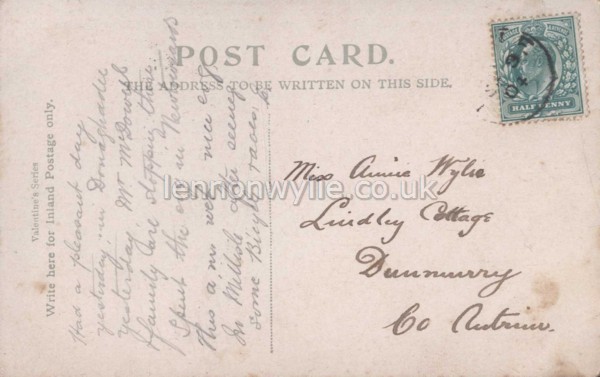 POST CARD.
THE ADDRESS TO BE WRITTEN ON THIS SIDE.
Valentine's Series
Write here for Inland Postage only.
Had a pleasant day
yesterday in Donaghadee
yesterday. Mr McDowell
family are stopping there
Spent the evg in Newtownards
This a.m. was nice evg
in seeing
some Bicycle races,
HALFPENNY
Miss Annie Wylie
Lindley Cottage
Dunmurry
Co Antrim.
lennonwylie.co.uk